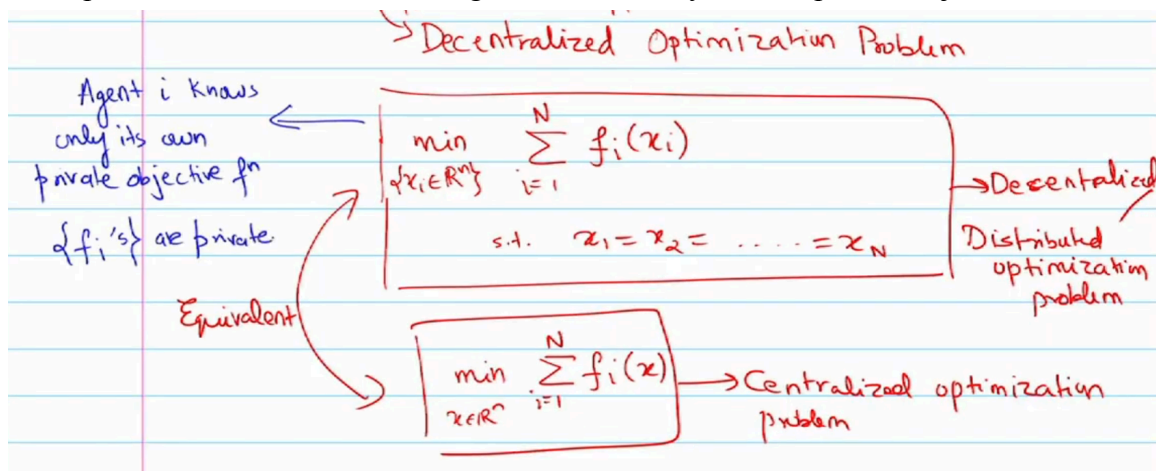 Decentralized Optimization Problem
Agent i knows
only its own
private objective fⁿ
{fᵢ's} are private
min Σ fᵢ(xᵢ)
{xᵢ∈ℝⁿ} i=1 N
s.t. x₁ = x₂ = ..... = x_N
→Decentralized
Distributed
optimization
problem
Equivalent
min Σ fᵢ(x)
x∈ℝⁿ i=1 N
→ Centralized optimization
problem